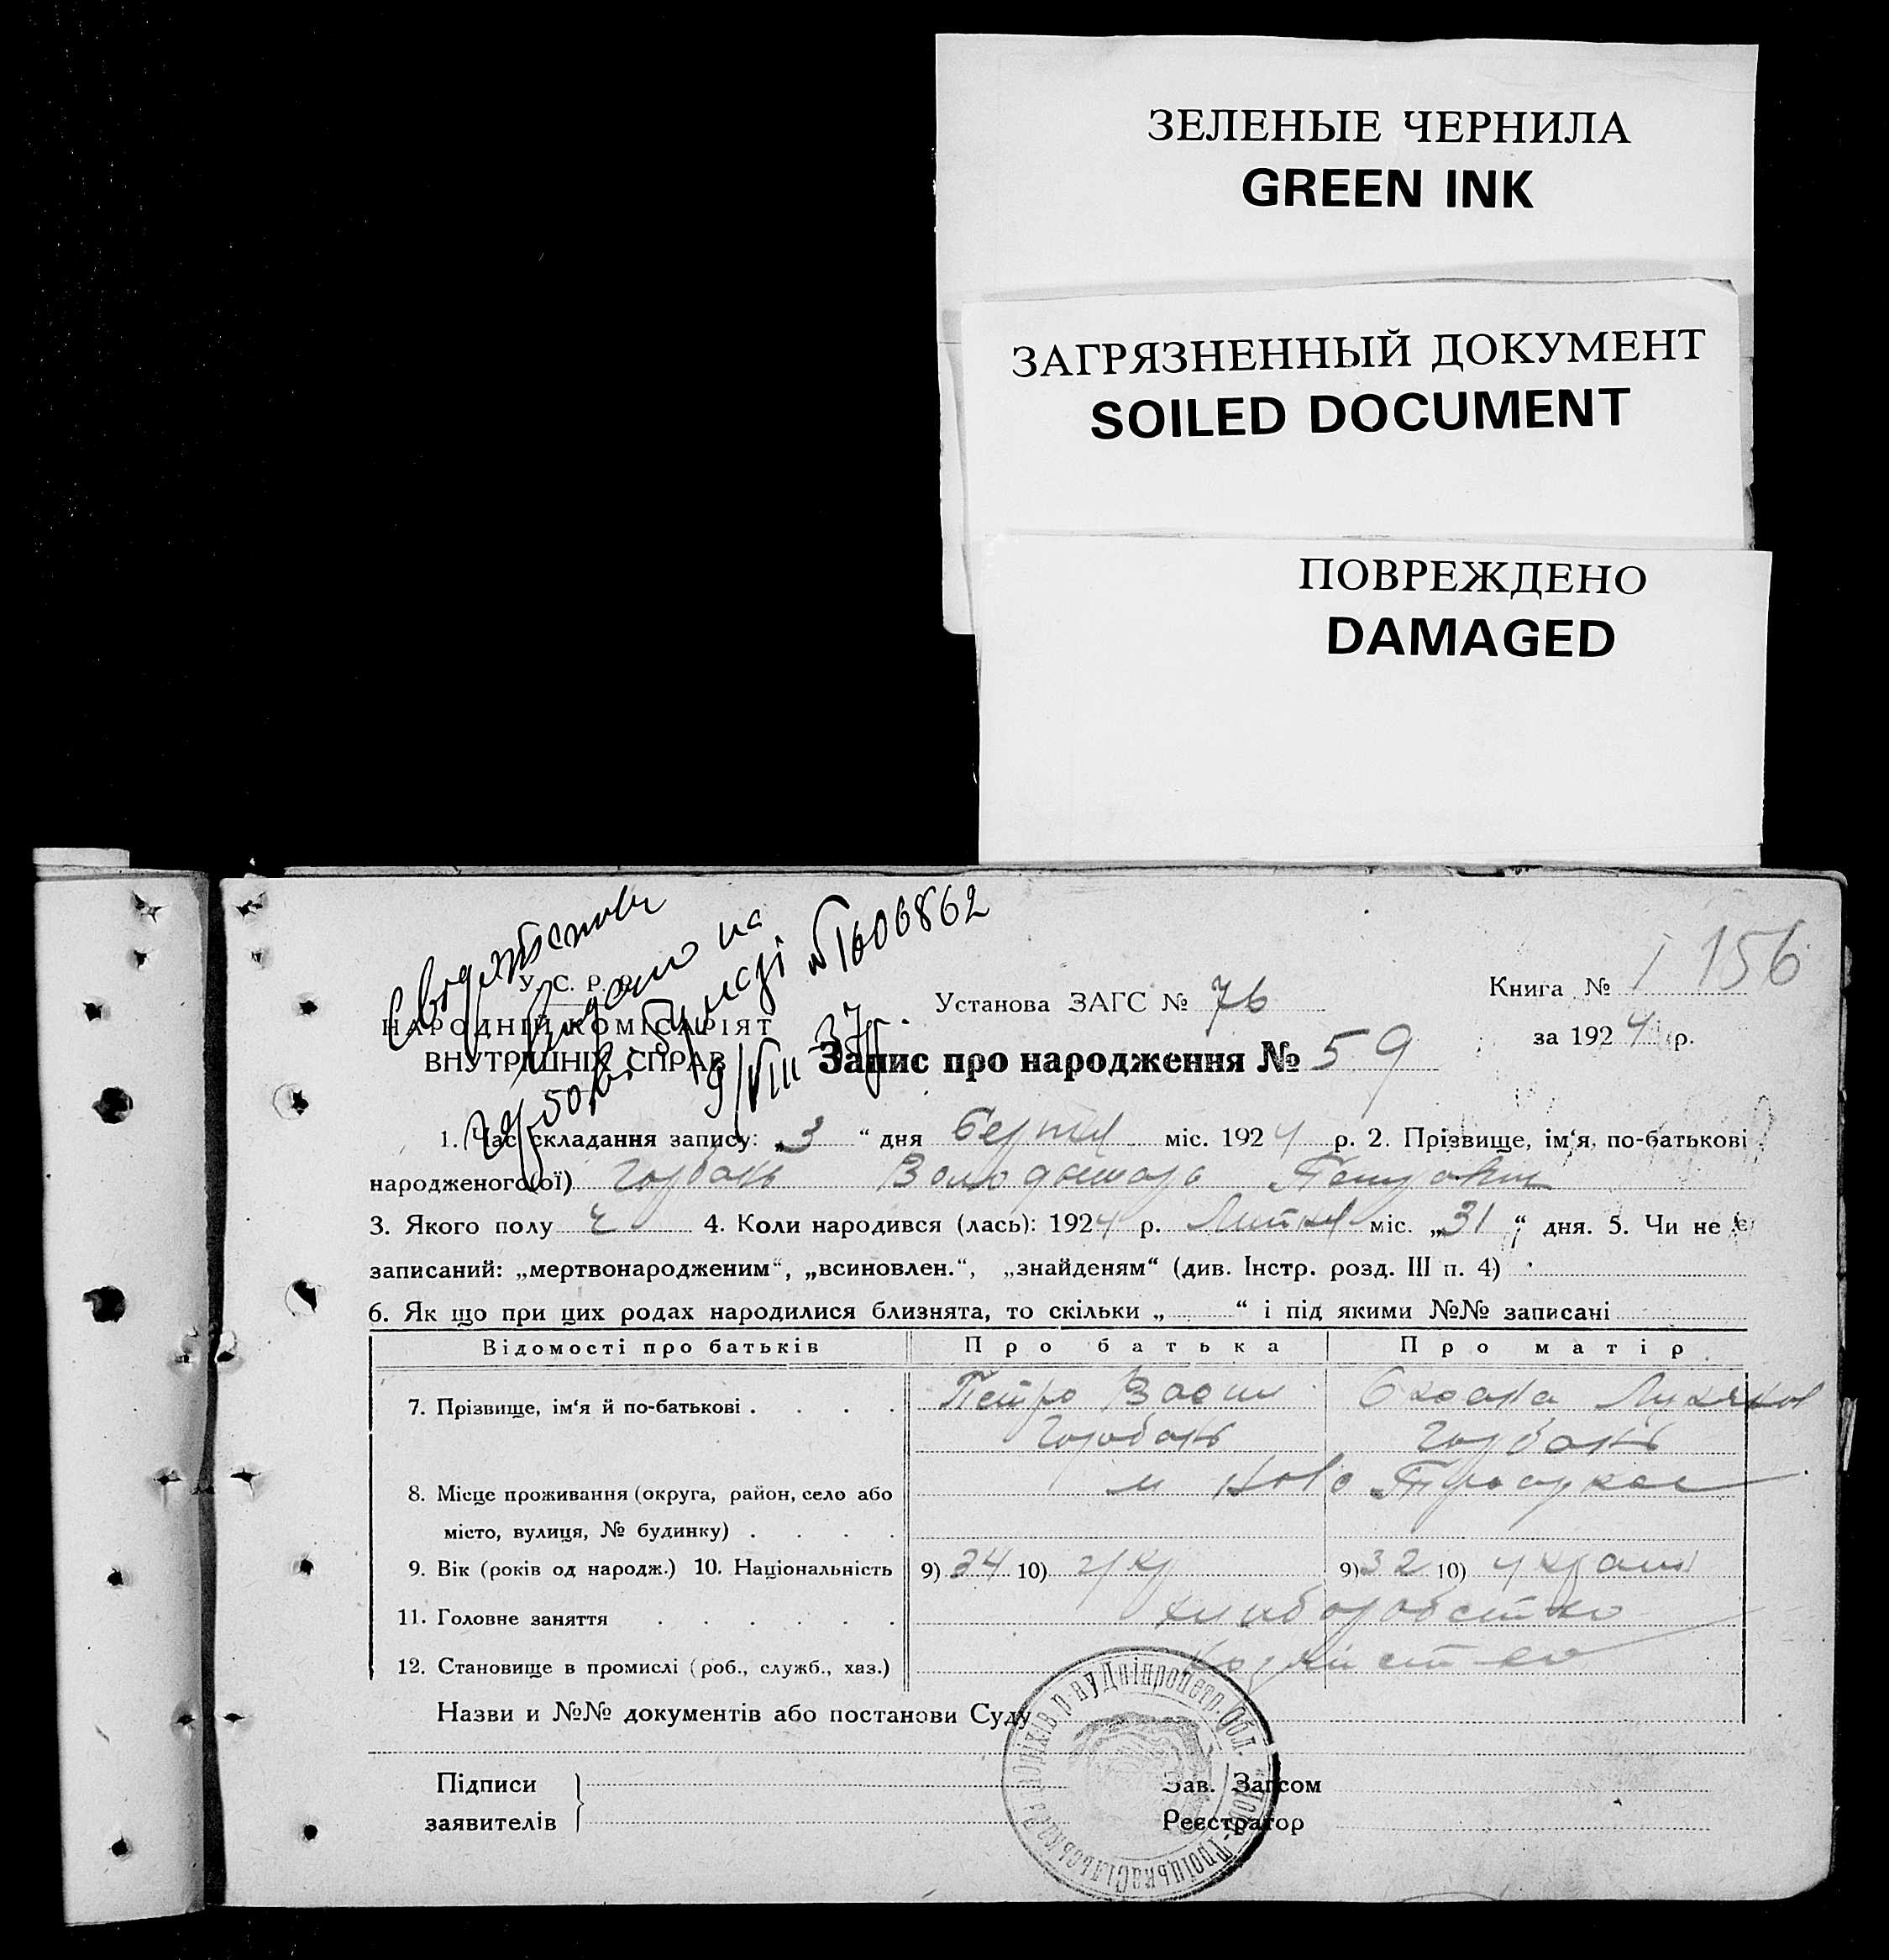 ЗЕЛЕНЫЕ ЧЕРНИЛА
GREEN INK
ЗАГРЯЗНЕННЫЙ ДОКУМЕНТ
SOILED DOCUMENT
ПОВРЕЖДЕНО
DAMAGED
видано на
№ 1606862
9/VIII 37р.
У. С. Р. Р.
НАРОДНІЙ КОМІСАРІЯТ
ВНУТРІШНІХ СПРАВ
Установа ЗАГС № 76
Книга № 1 156
за 1924 р.
Запис про народження № 59
1. Час складання запису: „3“ дня міс. 1924 р. 2. Прізвище, ім'я, по-батькові
народженого(ої) Горбань Володимир Петрович
3. Якого полу ч 4. Коли народився (лась): 1924 р. міс. „31“ дня. 5. Чи не є
записаний: „мертвонародженим“, „всиновлен.“, „знайденям“ (див. Інстр. розд. III п. 4)
6. Як що при цих родах народилися близнята, то скільки „ “ і під якими №№ записані
Відомості про батьків Про батька Про матір
7. Прізвище, ім'я й по-батькові . . . . Петро Васил
Горбань Горбань
8. Місце проживання (округа, район, село або
місто, вулиця, № будинку) . . . .
9. Вік (років од народж.) 10. Національність 9) 34 10) укр 9) 32 10) україн
11. Головне заняття . . . . . . хліборобство
12. Становище в промислі (роб., служб., хаз.)
Назви и №№ документів або постанови Суду
Підписи
заявителів
Зав. Загсом
Реєстратор
Оріхів. р-ну Дніпропетр. Обл. Ново-Троїцька Сільська